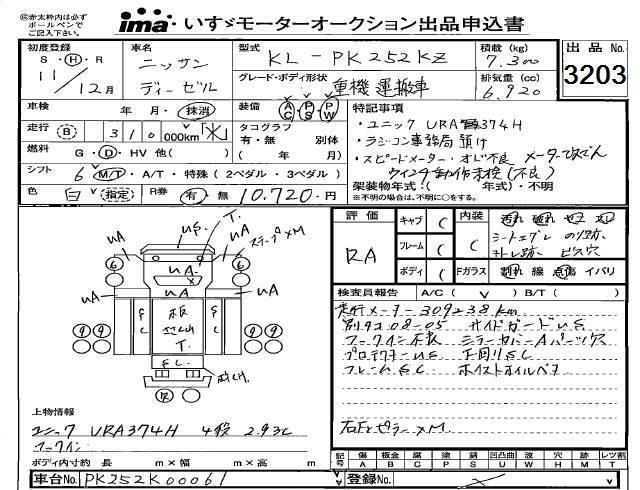 ㊟赤太枠内は必ず
ボールペンで
ご記入下さい。
ima いすゞモーターオークション出品申込書
初度登録 S・H・R 11年12月
車名 ニッサン ディーゼル
型式 KL-PK252KZ
積載(kg) 7.300
出品No. 3203
グレード・ボディ形状 重機運搬車
排気量(cc) 6.920
車検 年 月・抹消
装備 AC PS PW
特記事項
・ユニック URA374H
・ラジコン事務局預け
・スピードメーター・オド不良 メーター改ざん
ウインチ動作未検(不良)
走行 B 310,000km「水」
タコグラフ 有・無 別体 ( 年 月)
燃料 G・D・HV 他( )
シフト 6 M/T・A/T・特殊(2ペダル・3ペダル)
架装物年式( 年式)・不明
※不明の場合は、不明に○をする。
色 白 (指定)
R券 有・無 10.720-円
評価 RA
キャブ C
フレーム C
ボディ C
内装 C
汚れ 破れ セコ スレ
Fガラス 割れ 線 点傷 イバリ
検査員報告 A/C( ✓ ) B/T( )
走行メーター309238km
サイドガードUS
ミラーカバーAパーツ穴
プロテクターUS 下回りSC
フレームSC ホイストオイルベタ
右FピラーXM
UA US T. UA ステップXM
UA UA UA
6 6
SC 板 T. SC
9 9 9 9
SC
R
上物情報
ユニック URA374H 4段 2.93t
フックイン
ボディ内寸約 長 m×幅 m×高 m
記号 傷 A 板金 B 腐 C 塗 P 錆 S 凹凸曲 U 波 W 穴 H 汚 M レツ割 T
車台No. PK252K00061
登録No.